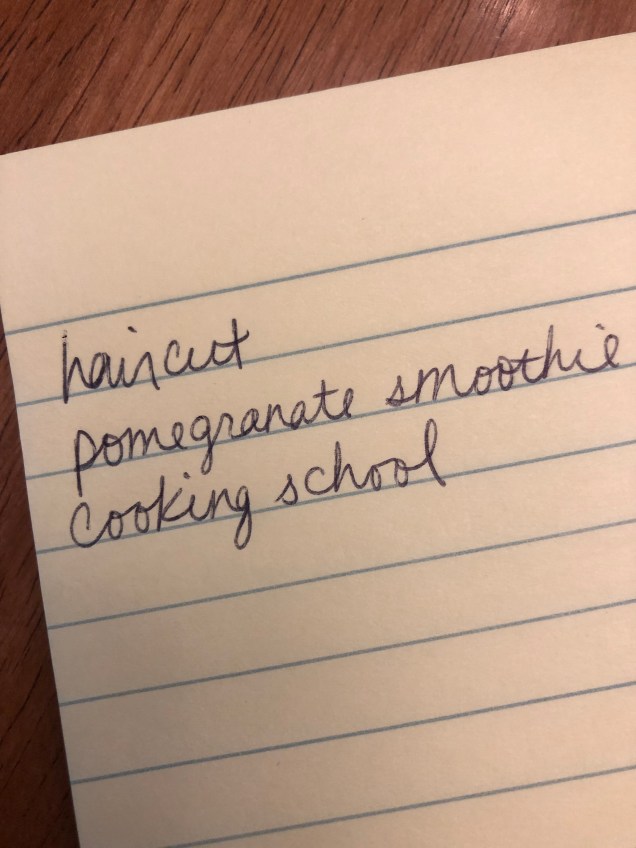 haircut
pomegranate smoothie
cooking school